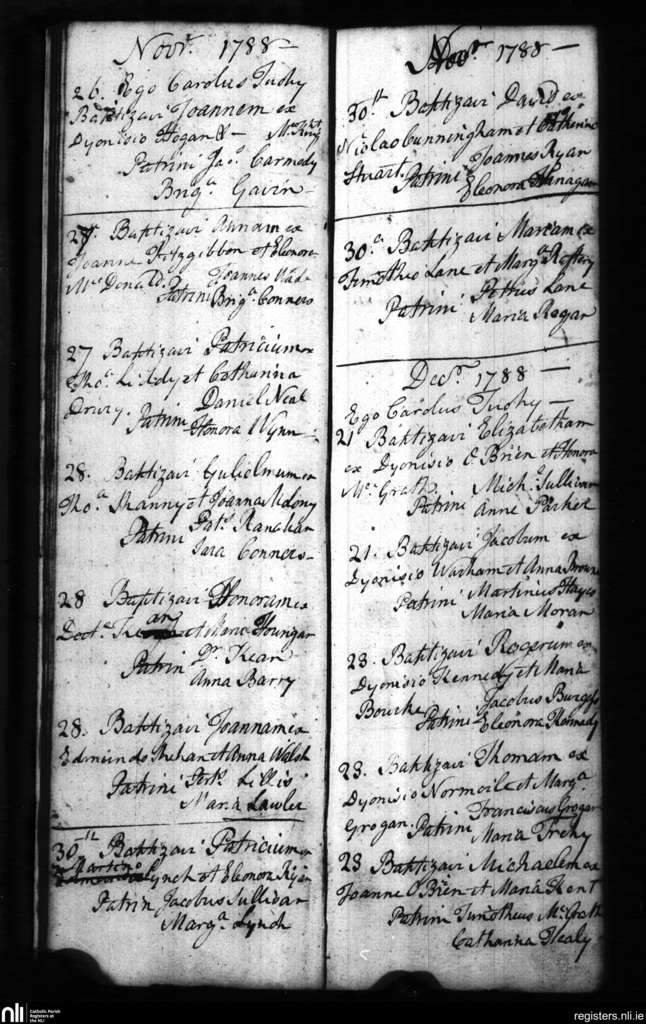 Novr. 1788 —
26. Ego Carolus Tuohy
Baptizavi Joannem ex
Dyonisio Hogan & —
Patrini Jaco. Carmody
Briga. Gavin
27 Baptizavi Annam ex
Joanne Fitzgibbon et Eleonora
McDonald. Patrini Joannes Wade
Briga. Conners
27 Baptizavi Patricium ex
Thoa. Liddy et Catharina
Drury. Patrini Daniel Neal
Honora Wynn
28. Baptizavi Gulielmum ex
Thoa. Shanny et Joanna
Patrini Patk. Ranahan
Sara Conners —
28 Baptizavi Honoram ex
Doct. et Maria Houngan
Patrin Dr. Kean
Anna Barry
28. Baptizavi Joannam ex
Edmundo Shehan et Anna Walsh
Patrini Lillis
Maria Lawler
30th Baptizavi Patricium ex
Martino Lynch et Eleonora Ryan
Patrin Jacobus Sullivan
Marga. Lynch
Novr 1788 —
30th Baptizavi David ex
Nicolao Cunningham et Catherine
Stuart. Patrini Joannes Ryan
Eleonora Flanagan
30.a Baptizavi Mariam ex
Timotheo Lane et Marga. Roftery
Patrini Petrus Lane
Maria Regan
Decr. 1788 —
Ego Carolus Tuohy —
21 Baptizavi Elizabetham
ex Dyonisio O'Brien et Honora
McGrath. Micho. Sullivan
Patrini Anne Parker
21. Baptizavi Jacobum ex
Dyonisio Warham et Anna Browne
Patrini Martinus Hayes
Maria Moran
23. Baptizavi Rogerum ex
Dyonisio Kennedy et Maria
Bourke Patrini Jacobus Burgess
Eleonora Kennedy
23. Baptizavi Thomam ex
Dyonisio Normoile et Marga.
Grogan. Patrini Franciscus Grogan
Maria Trehy
23 Baptizavi Michaelem ex
Joanne O'Brien et Maria Kent
Patrini Timotheus McGrath
Catharina Healy
nli Catholic Parish
Registers at
the NLI
registers.nli.ie